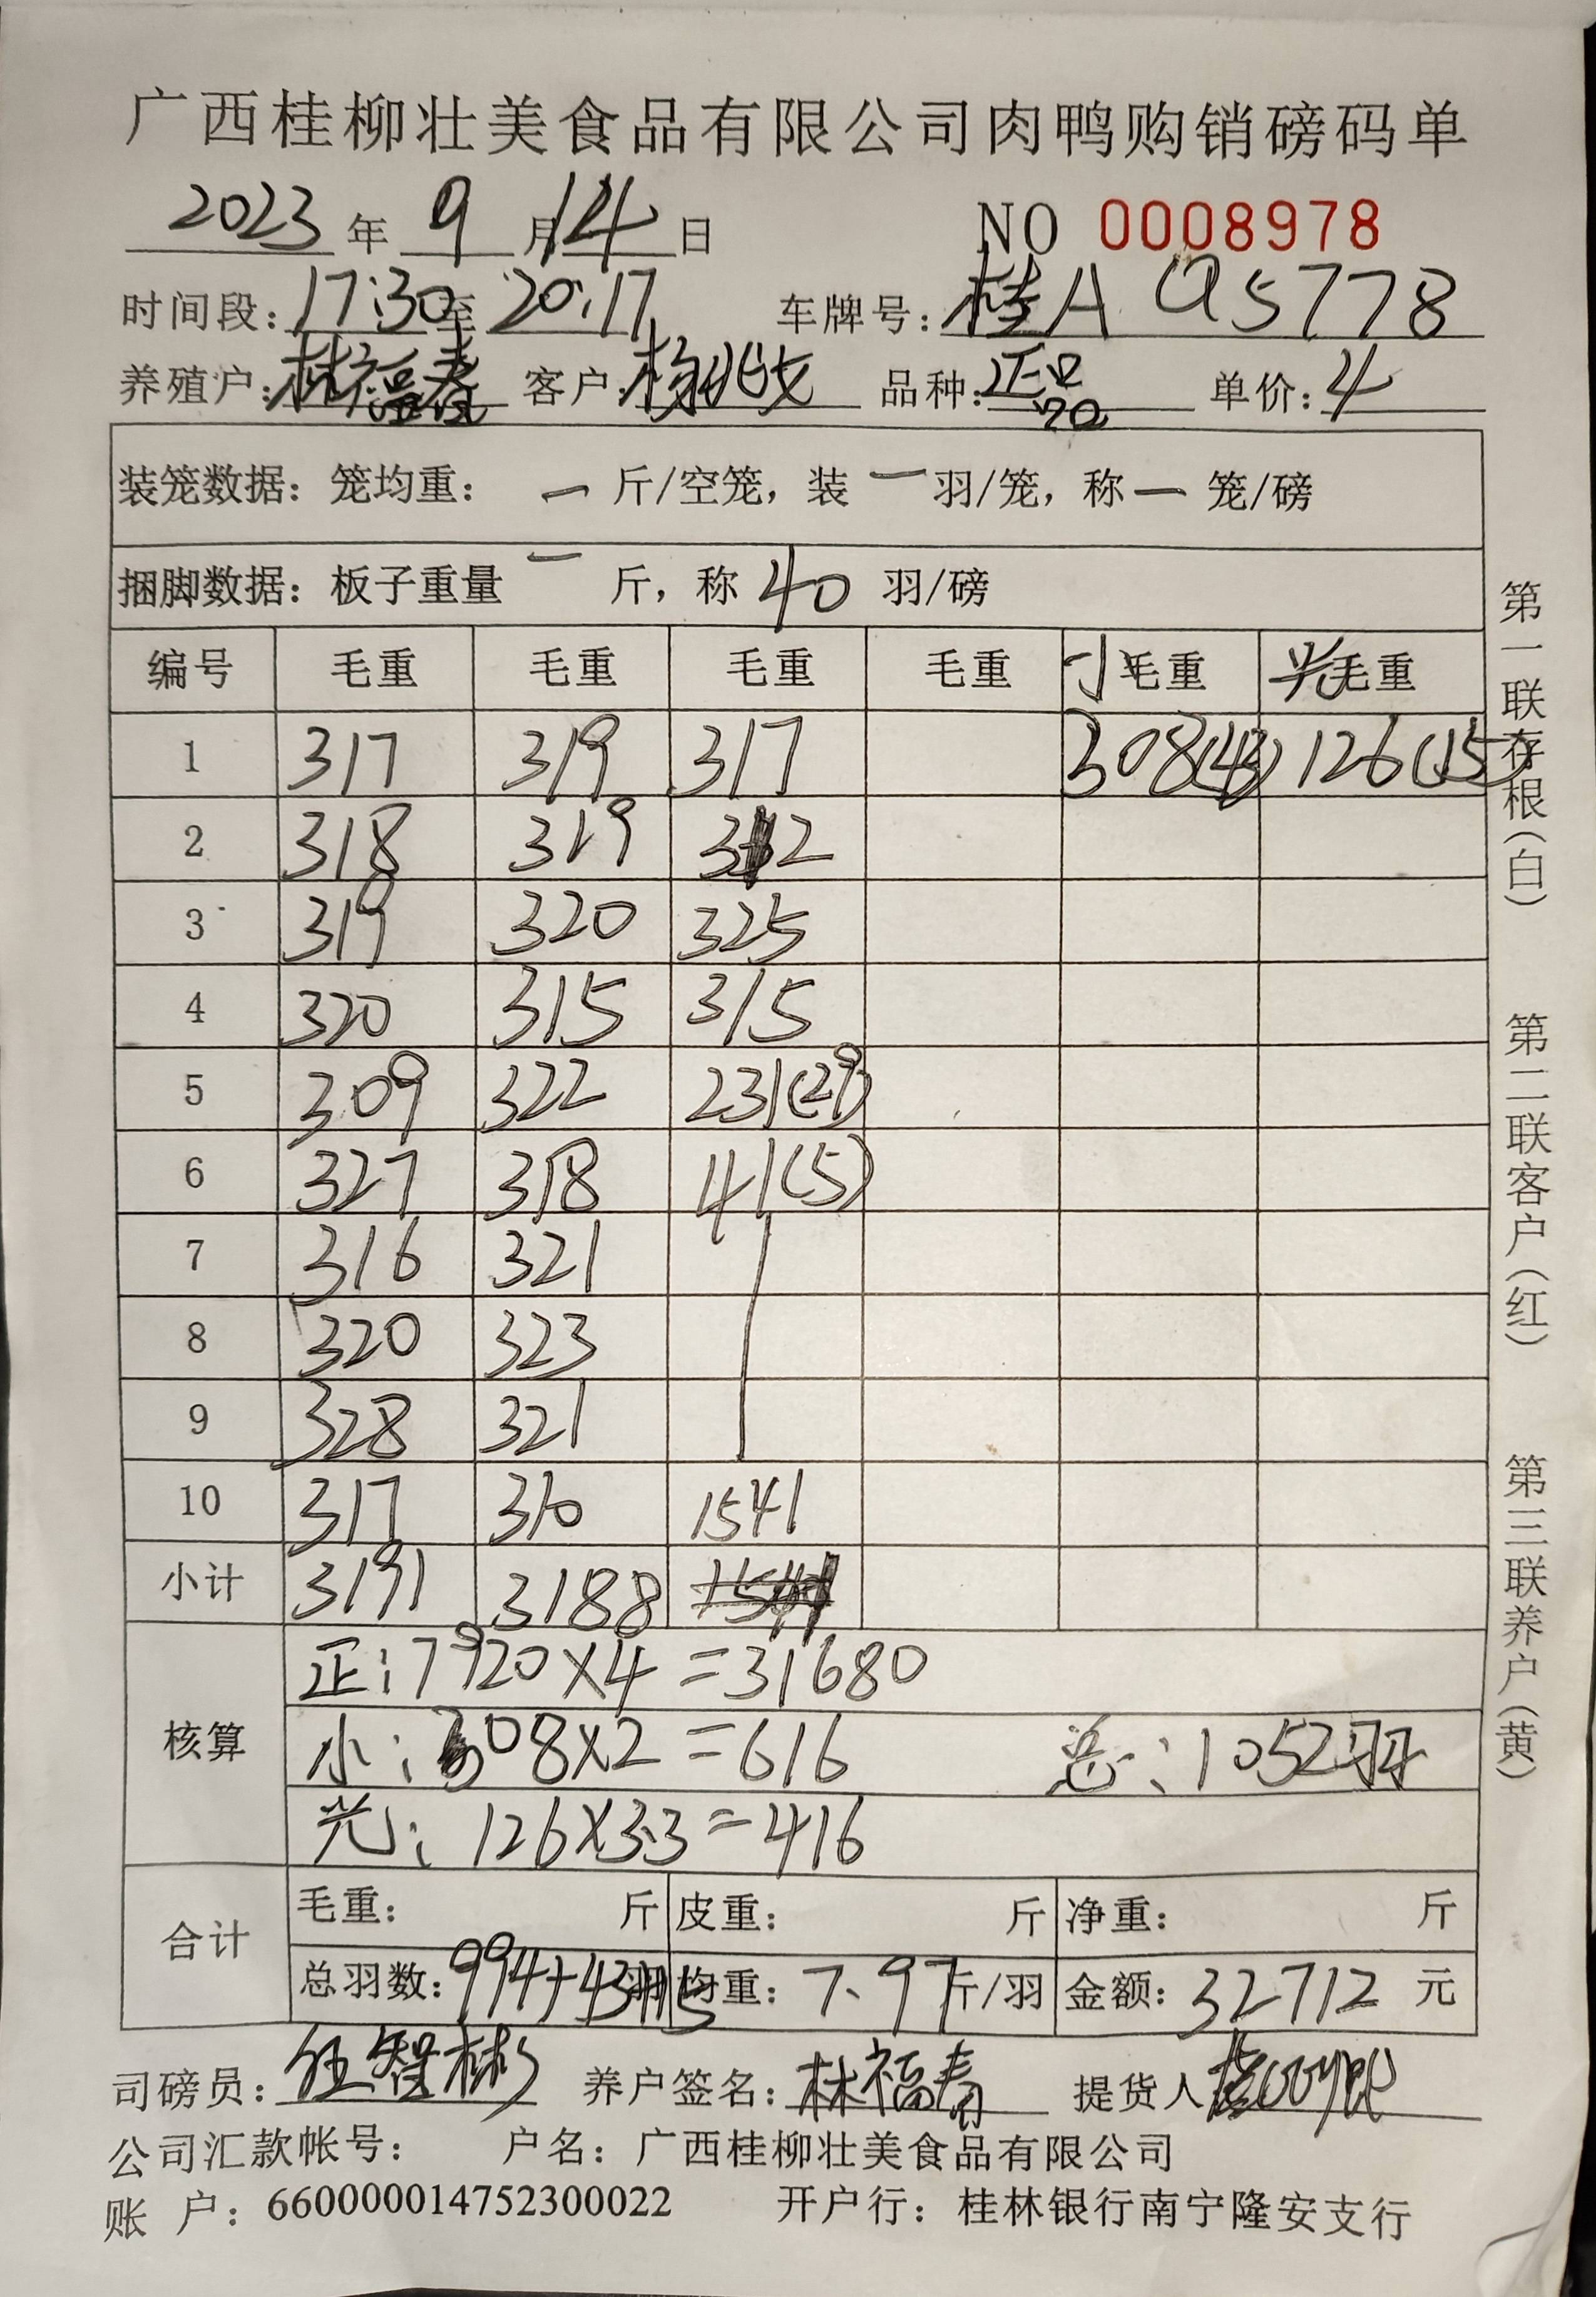 广西桂柳壮美食品有限公司肉鸭购销磅码单
2023 年 9 月 14 日 NO 0008978
时间段: 17:30 至 20:17 车牌号: 桂A Q5778
养殖户: 林福春 客户: 杨兆文 品种: 正品 单价: 4
装笼数据: 笼均重: — 斤/空笼, 装 — 羽/笼, 称 — 笼/磅
捆脚数据: 板子重量 — 斤, 称 40 羽/磅
编号 毛重 毛重 毛重 毛重 小毛重 光毛重
1 317 319 317 308(43) 126(15)
2 318 319 312
3 319 320 325
4 320 315 315
5 309 322 231(29)
6 327 318 41(5)
7 316 321
8 320 323
9 328 321
10 317 310 1541
小计 3191 3188
核算
正: 7920×4=31680
小: 308×2=616 总: 1052羽
光: 126×3.3=416
合计
毛重: 斤 皮重: 斤 净重: 斤
总羽数: 994+43+15 羽 均重: 7.97 斤/羽 金额: 32712 元
司磅员: 智彬 养户签名: 林福春 提货人
公司汇款帐号: 户名: 广西桂柳壮美食品有限公司
账 户: 660000014752300022 开户行: 桂林银行南宁隆安支行
第一联存根(白)
第二联客户(红)
第三联养户(黄)